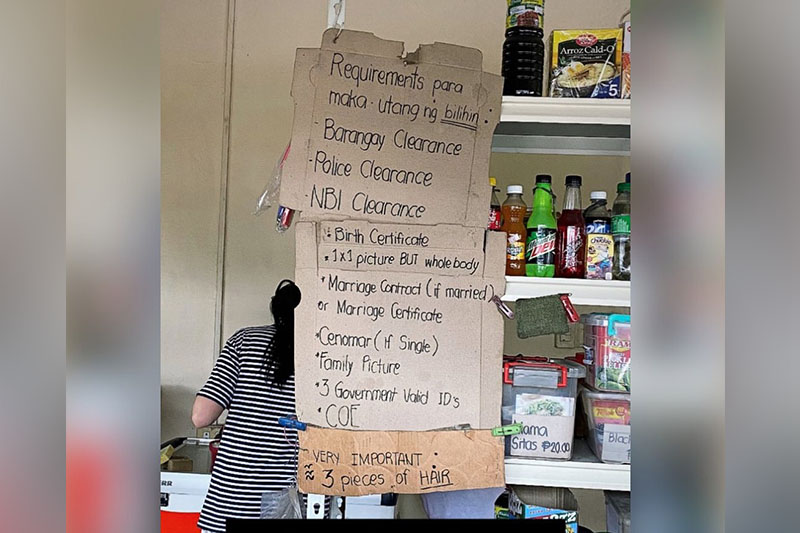 Requirements para
maka-utang ng bilihin :
- Barangay Clearance
- Police Clearance
- NBI Clearance
* Birth Certificate
* 1x1 picture BUT whole body
* Marriage Contract (if married)
or Marriage Certificate
* Cenomar (if Single)
* Family Picture
* 3 Government Valid ID's
* COE
VERY IMPORTANT :
≈ 3 pieces of HAIR
ARROZ CALD-O
5
Mama
Sitas ₱20.00
Black